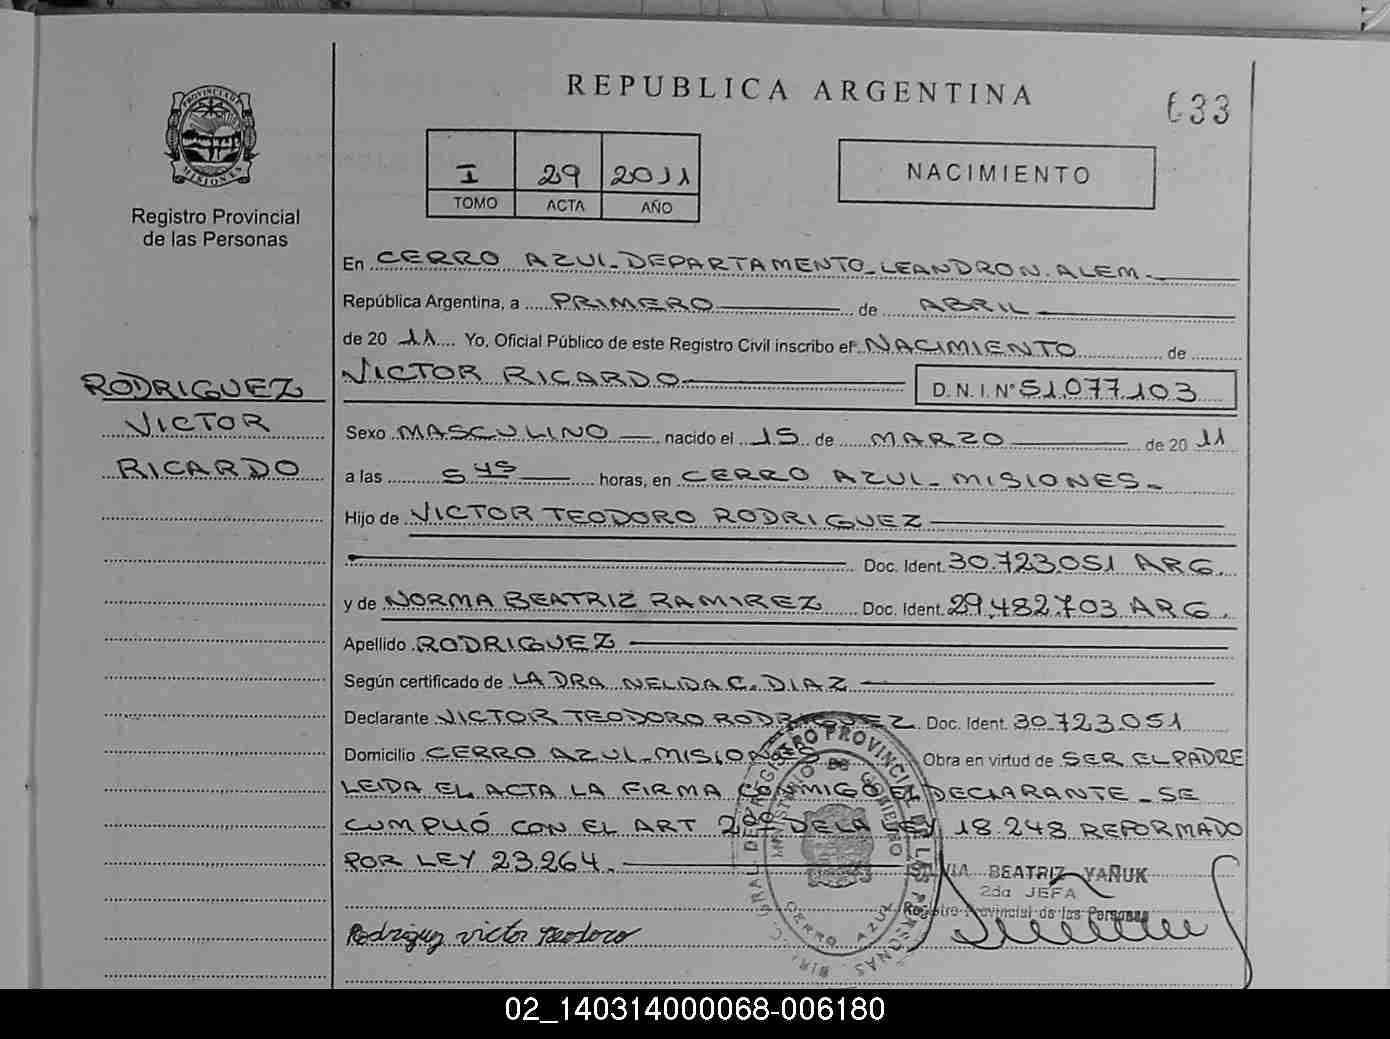 REPUBLICA ARGENTINA
633
PROVINCIA DE MISIONES
Registro Provincial
de las Personas
I 29 2011
TOMO ACTA AÑO
NACIMIENTO
En CERRO AZUL-DEPARTAMENTO-LEANDRO N. ALEM-
República Argentina, a PRIMERO de ABRIL
de 20 11 Yo, Oficial Público de este Registro Civil inscribo el NACIMIENTO de
VICTOR RICARDO D. N. I. Nº 51.077.103
RODRIGUEZ
VICTOR
RICARDO
Sexo MASCULINO nacido el 15 de MARZO de 20 11
a las 5 45 horas, en CERRO AZUL - MISIONES-
Hijo de VICTOR TEODORO RODRIGUEZ
Doc. Ident. 30.723.051 ARG.
y de NORMA BEATRIZ RAMIREZ Doc. Ident. 29.482.703 ARG.
Apellido RODRIGUEZ
Según certificado de LA DRA NELIDA C. DIAZ
Declarante VICTOR TEODORO RODRIGUEZ Doc. Ident. 30.723.051
Domicilio CERRO AZUL-MISIONES Obra en virtud de SER EL PADRE
LEIDA EL ACTA LA FIRMA CONMIGO EL DECLARANTE - SE
CUMPLIÓ CON EL ART DE LA LEY 18.248 REFORMADO
POR LEY 23.264.
BEATRIZ YAÑUK
2da JEFA
Registro Provincial de las Personas
Rodriguez victor teodoro
REGISTRO PROVINCIAL DE LAS PERSONAS
MINISTERIO DE GOBIERNO
CERRO AZUL
02_140314000068-006180